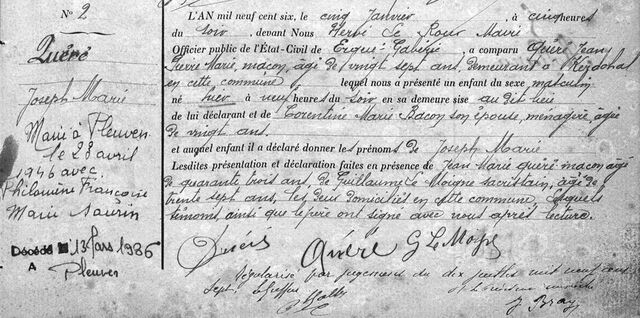 N° 2
Quéré
Joseph Marie
Marié à Pleuven
le 28 avril
1946 avec
Philomène Françoise
Marie Naurin
Décédé le 13 Mars 1986
A Pleuven
L'AN mil neuf cent six, le cinq Janvier, à cinq heures
du soir, devant Nous Hervé Le Roux Maire
Officier public de l'État-Civil de Ergué-Gabéric, a comparu Quéré Jean
Pierre Marie, maçon, âgé de vingt sept ans, demeurant à
en cette commune lequel nous a présenté un enfant du sexe masculin
né hier à neuf heures du soir, en sa demeure sise au dit lieu
de lui déclarant et de Corentine Marie Bacon son épouse, ménagère, âgée
de vingt ans.
et auquel enfant il a déclaré donner les prénoms de Joseph Marie
Lesdites présentation et déclaration faites en présence de Jean Marie Quéré maçon, âgé
de quarante trois ans, de Guillaume Le Moigne sacristain, âgé de
trente sept ans, les deux domiciliés en cette commune lesquels
témoins, ainsi que le père ont signé avec nous après lecture.
Quéré Quéré G Le Moigne
Régularisé par jugement du dix juillet mil neuf cent
sept. Le greffier